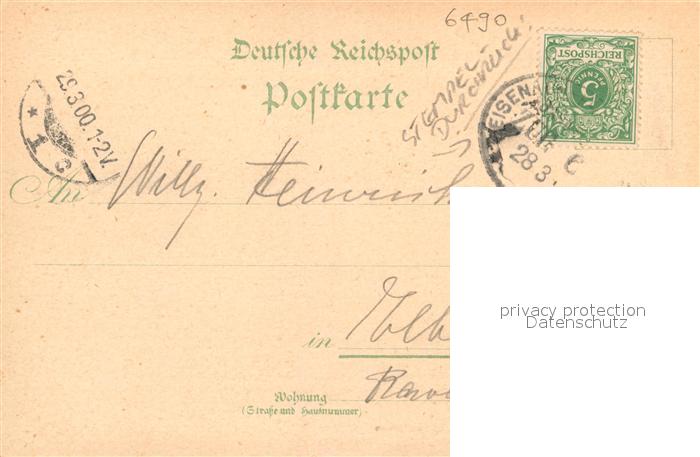 6490
Deutsche Reichspost
Postkarte
STEMPEL
DURCHREICH!
REICHSPOST
PFENNIG
5
EISENA
28 3
29.3.00.1-2V.
* 1 c
An Willy Heinrich
in Elb
Wohnung
(Straße und Hausnummer)
privacy protection
Datenschutz